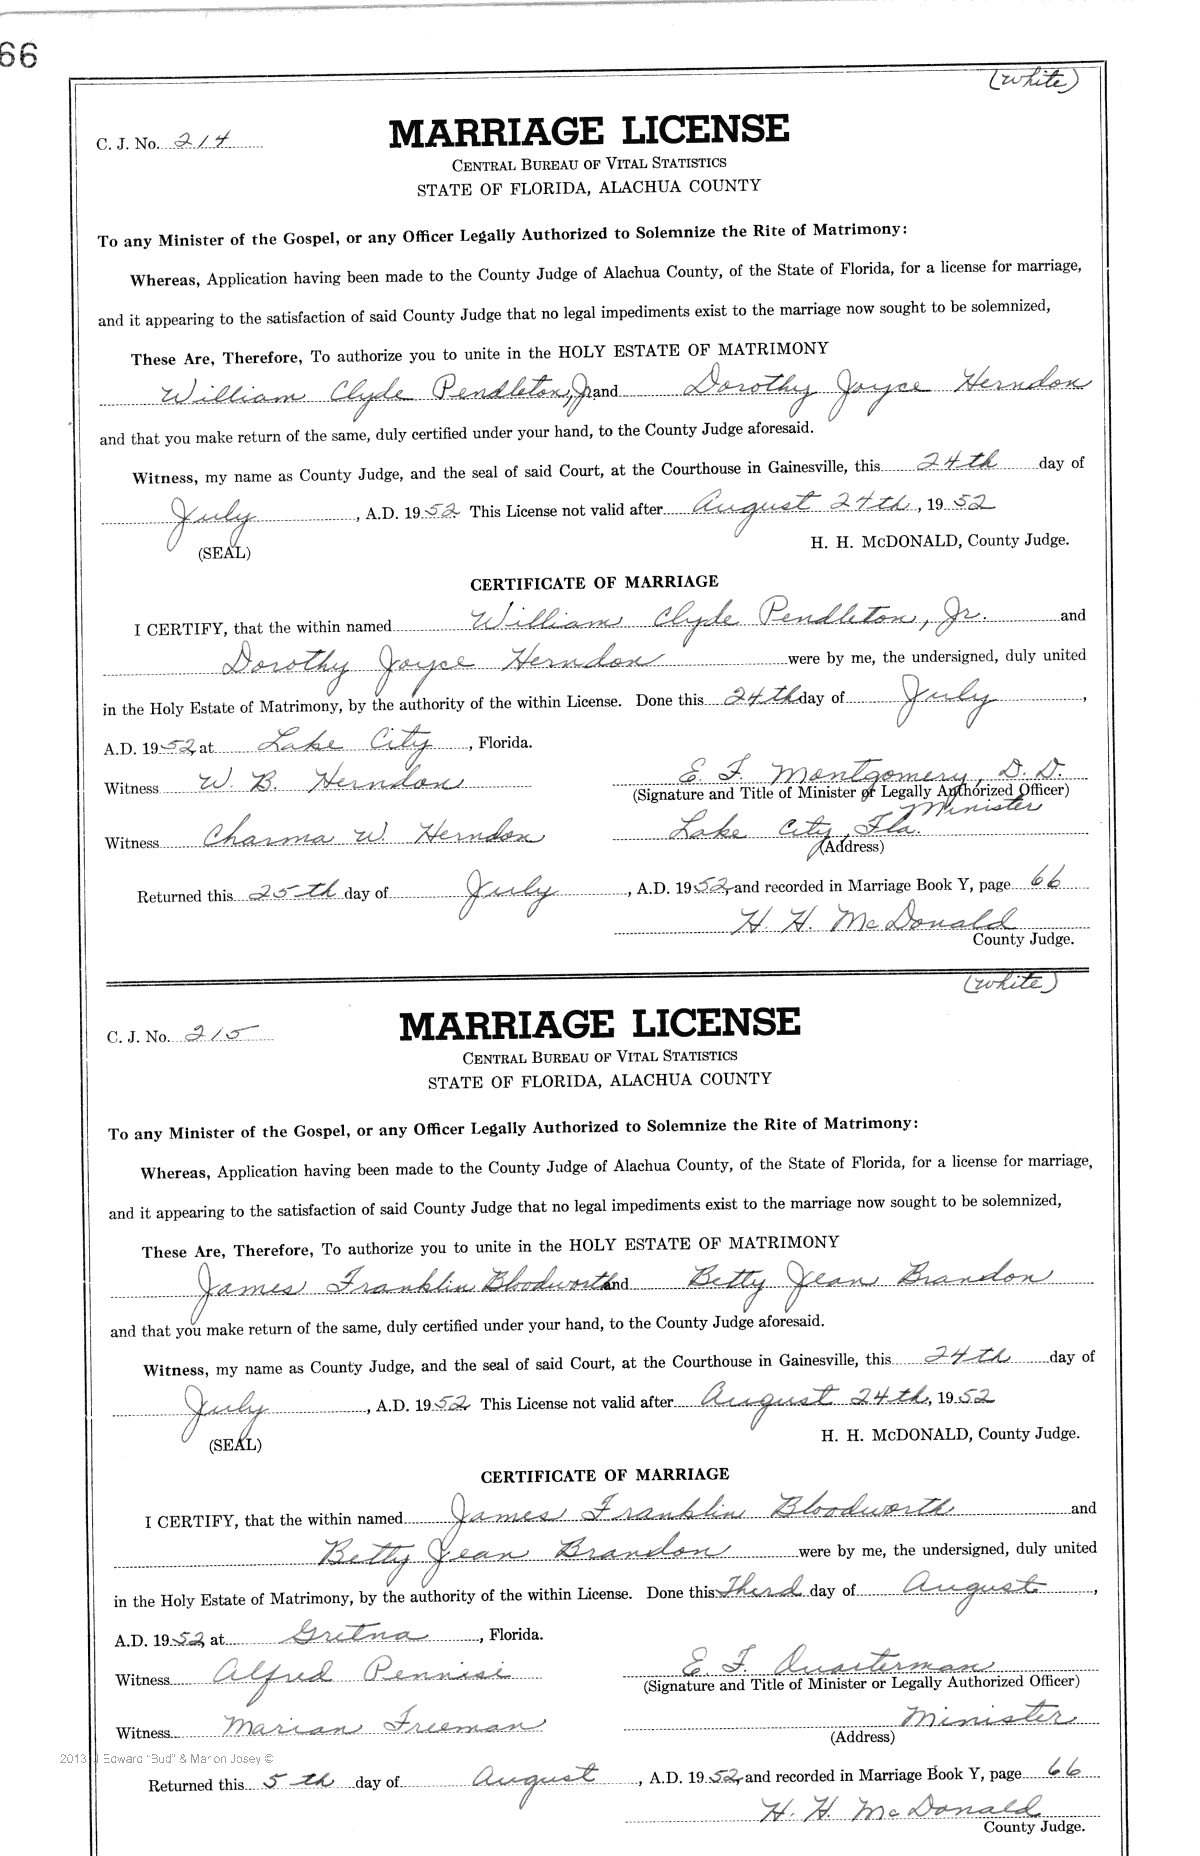 66
(White)
C. J. No. 214
MARRIAGE LICENSE
CENTRAL BUREAU OF VITAL STATISTICS
STATE OF FLORIDA, ALACHUA COUNTY
To any Minister of the Gospel, or any Officer Legally Authorized to Solemnize the Rite of Matrimony:
Whereas, Application having been made to the County Judge of Alachua County, of the State of Florida, for a license for marriage,
and it appearing to the satisfaction of said County Judge that no legal impediments exist to the marriage now sought to be solemnized,
These Are, Therefore, To authorize you to unite in the HOLY ESTATE OF MATRIMONY
William Clyde Pendleton, Jr. and Dorothy Joyce Herndon
and that you make return of the same, duly certified under your hand, to the County Judge aforesaid.
Witness, my name as County Judge, and the seal of said Court, at the Courthouse in Gainesville, this 24th day of
July, A.D. 1952 This License not valid after August 24th, 1952
(SEAL) H. H. McDONALD, County Judge.
CERTIFICATE OF MARRIAGE
I CERTIFY, that the within named William Clyde Pendleton, Jr. and
Dorothy Joyce Herndon were by me, the undersigned, duly united
in the Holy Estate of Matrimony, by the authority of the within License. Done this 24th day of July,
A.D. 1952, at Lake City, Florida.
Witness W. B. Herndon E. F. Montgomery, D. D.
(Signature and Title of Minister or Legally Authorized Officer)
Minister
Witness Charma W. Herndon Lake City, Fla.
(Address)
Returned this 25th day of July, A.D. 1952, and recorded in Marriage Book Y, page 66
H. H. McDonald
County Judge.
(White)
C. J. No. 215
MARRIAGE LICENSE
CENTRAL BUREAU OF VITAL STATISTICS
STATE OF FLORIDA, ALACHUA COUNTY
To any Minister of the Gospel, or any Officer Legally Authorized to Solemnize the Rite of Matrimony:
Whereas, Application having been made to the County Judge of Alachua County, of the State of Florida, for a license for marriage,
and it appearing to the satisfaction of said County Judge that no legal impediments exist to the marriage now sought to be solemnized,
These Are, Therefore, To authorize you to unite in the HOLY ESTATE OF MATRIMONY
James Franklin Bloodworth and Betty Jean Brandon
and that you make return of the same, duly certified under your hand, to the County Judge aforesaid.
Witness, my name as County Judge, and the seal of said Court, at the Courthouse in Gainesville, this 24th day of
July, A.D. 1952 This License not valid after August 24th, 1952
(SEAL) H. H. McDONALD, County Judge.
CERTIFICATE OF MARRIAGE
I CERTIFY, that the within named James Franklin Bloodworth and
Betty Jean Brandon were by me, the undersigned, duly united
in the Holy Estate of Matrimony, by the authority of the within License. Done this Third day of August,
A.D. 1952, at Gretna, Florida.
Witness Alfred Pennisi E. F. Quarterman
(Signature and Title of Minister or Legally Authorized Officer)
Witness Marian Freeman Minister
(Address)
2013 J Edward "Bud" & Marion Josey ©
Returned this 5th day of August, A.D. 1952, and recorded in Marriage Book Y, page 66
H. H. McDonald
County Judge.